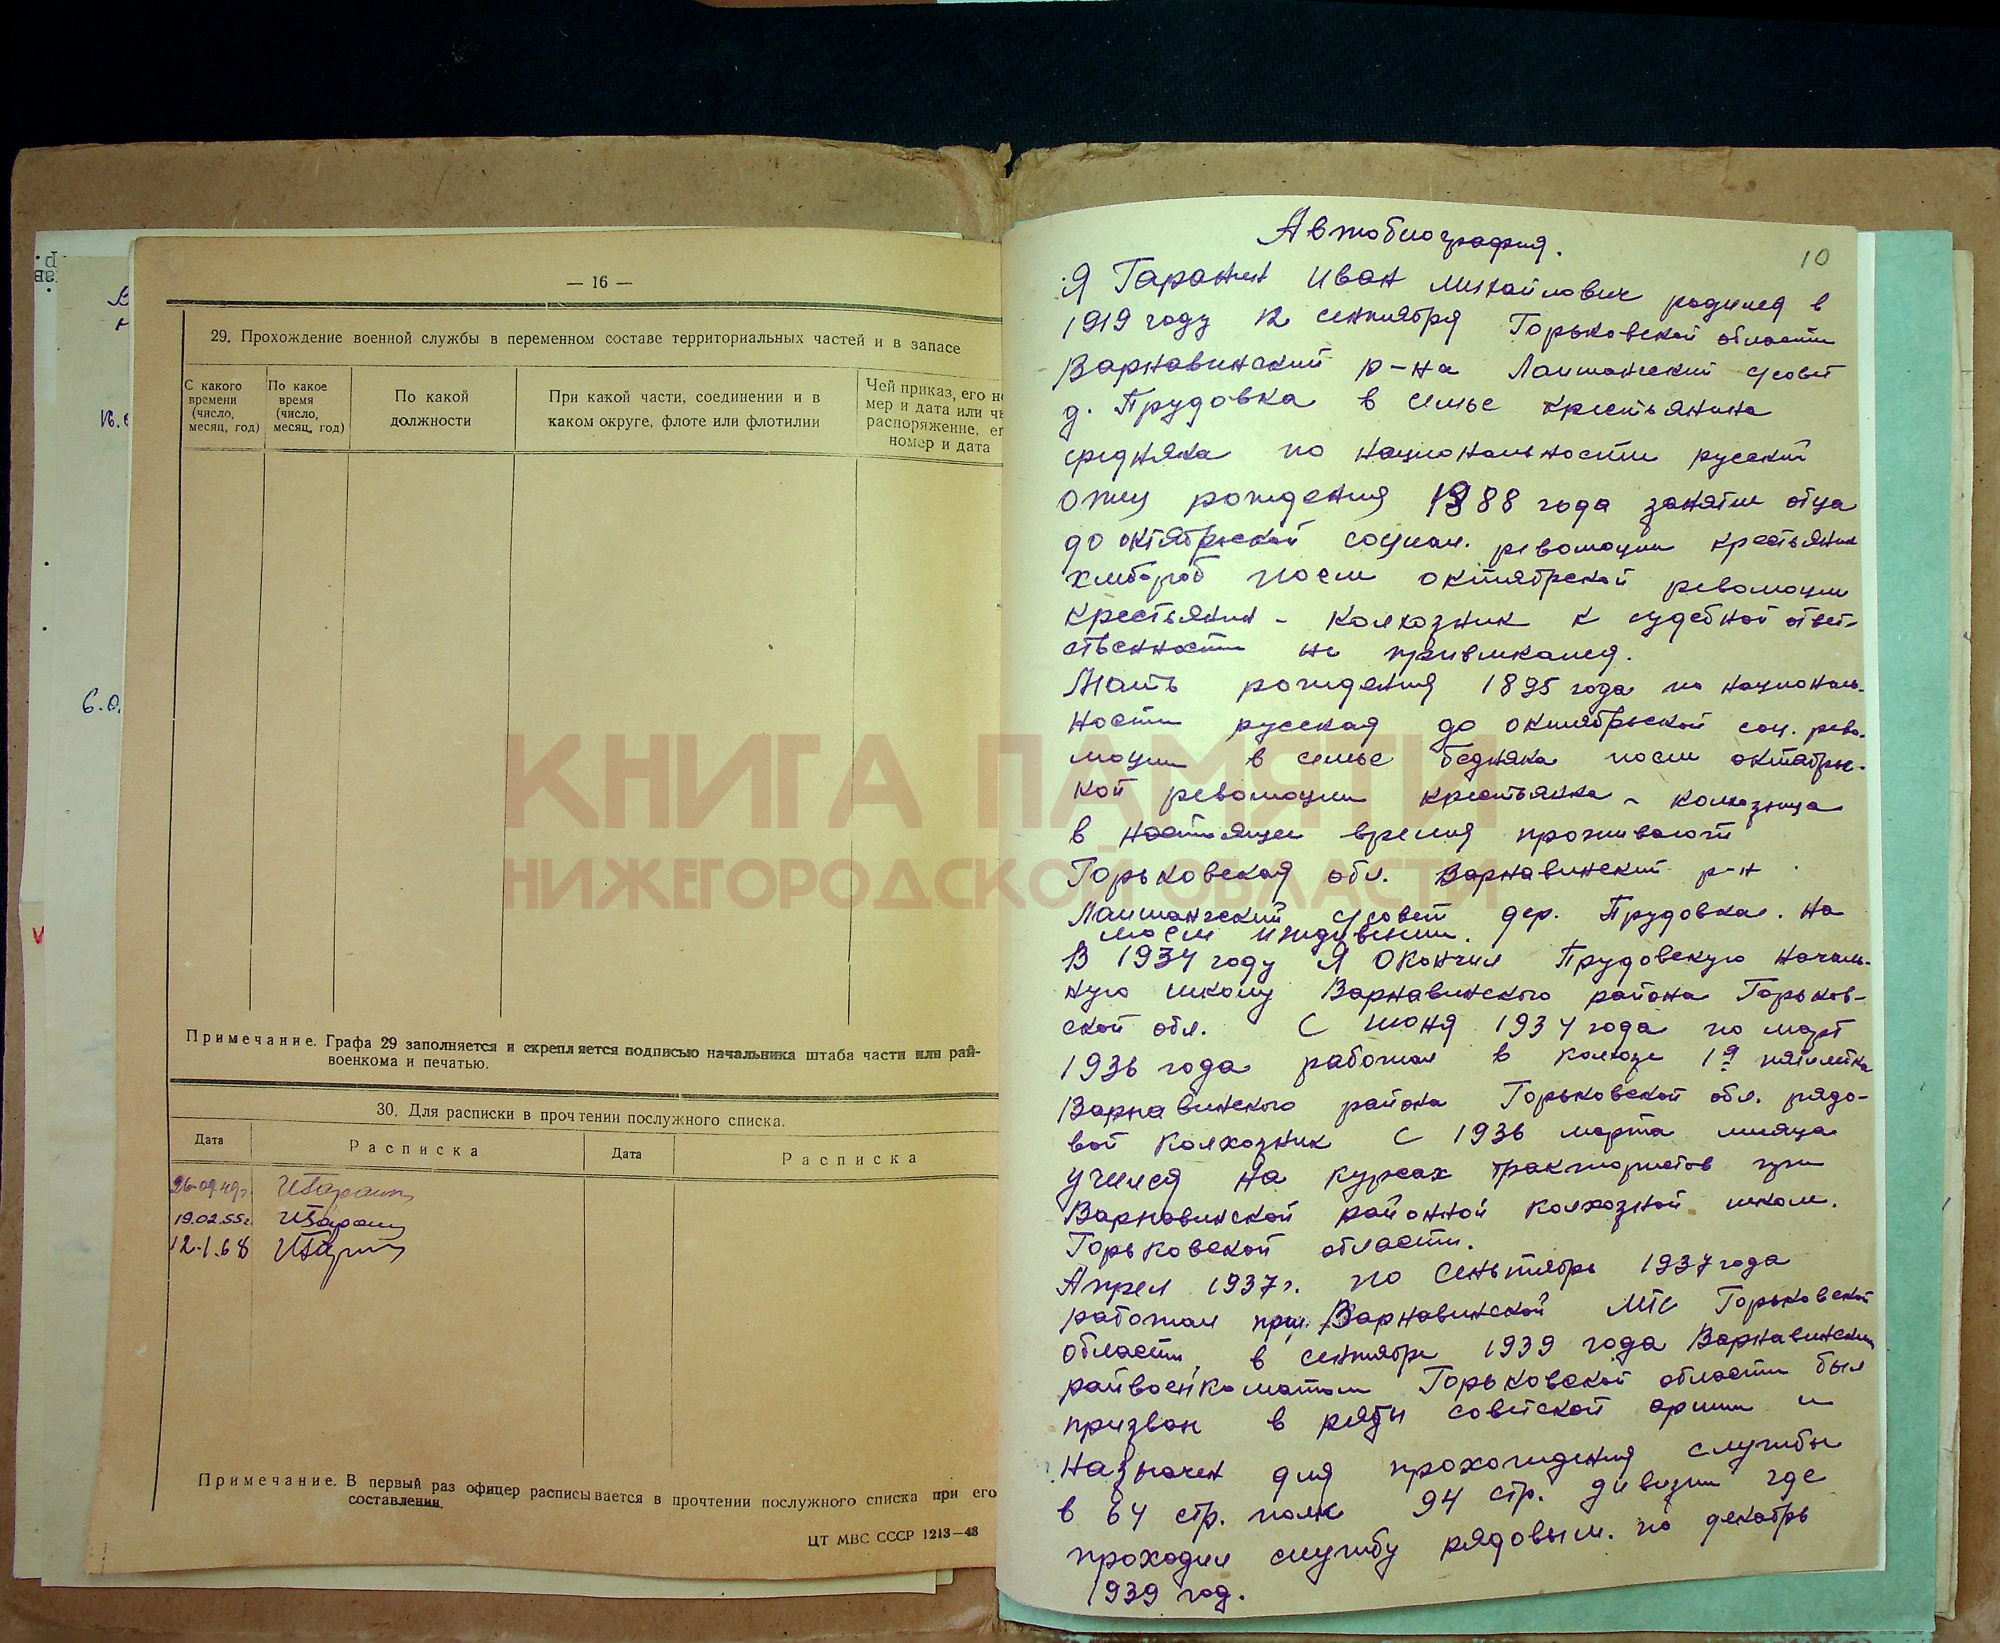 — 16 —
29. Прохождение военной службы в переменном составе территориальных частей и в запасе
С какого времени (число, месяц, год)
По какое время (число, месяц, год)
По какой должности
При какой части, соединении и в каком округе, флоте или флотилии
Чей приказ, его но
мер и дата или чь
распоряжение, ег
номер и дата
Примечание. Графа 29 заполняется и скрепляется подписью начальника штаба части или рай-
военкома и печатью.
30. Для расписки в прочтении послужного списка.
Дата Расписка Дата Расписка
26.09.49г.
19.02.55г.
12.1.68
Примечание. В первый раз офицер расписывается в прочтении послужного списка при его
составлении.
ЦТ МВС СССР 1213—48
10
Автобиография.
Я Гаранин Иван Михайлович родился в
1919 году 12 сентября Горьковской области
Варнавинский р-на Лапшангский с/совет
д. Прудовка в семье крестьянина
средняка по национальности русский
Отец рождения 1888 года занятие отца
до октябрьской социал. революции крестьянин
хлебороб после октябрской революции
крестьянин - колхозник к судебной ответ-
ственности не привлекался.
Мать рождения 1895 года по националь-
ности русская до октябрьской соц. рево-
люции в семье бедняка после октябрь-
кой революции крестьянка - колхозница
в настоящее время проживают
Горьковская обл. Варнавинский р-н
Лапшангский с/совет дер. Прудовка. На
моем иждивении.
В 1934 году я окончил Прудовскую началь-
ную школу Варнавинского района Горьков-
ской обл. С июня 1934 года по март
1936 года работал в колхозе 1я пятилетка
Варнавинского района Горьковской обл. рядо-
вой колхозник С 1936 марта месяца
учился на курсах трактористов при
Варнавинской районной колхозной школе.
Горьковской области.
Апрел 1937 г. по сеньтябрь 1937 года
работал при Варнавинской МТС Горьковской
области, в сентябре 1939 года Варнавинским
райвоенкоматом Горьковской области был
призван в ряды советской армии и
назначен для прохождения службы
в 64 стр. полк 94 стр. дивизии где
проходил службу рядовым. по декабрь
1939 год.
КНИГА ПАМЯТИ
НИЖЕГОРОДСКОЙ ОБЛАСТИ